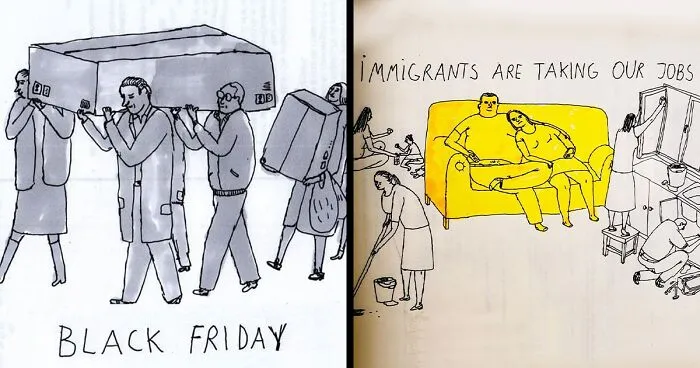 BLACK FRIDAY
iMMiGRANTS ARE TAKING OUR JOBS